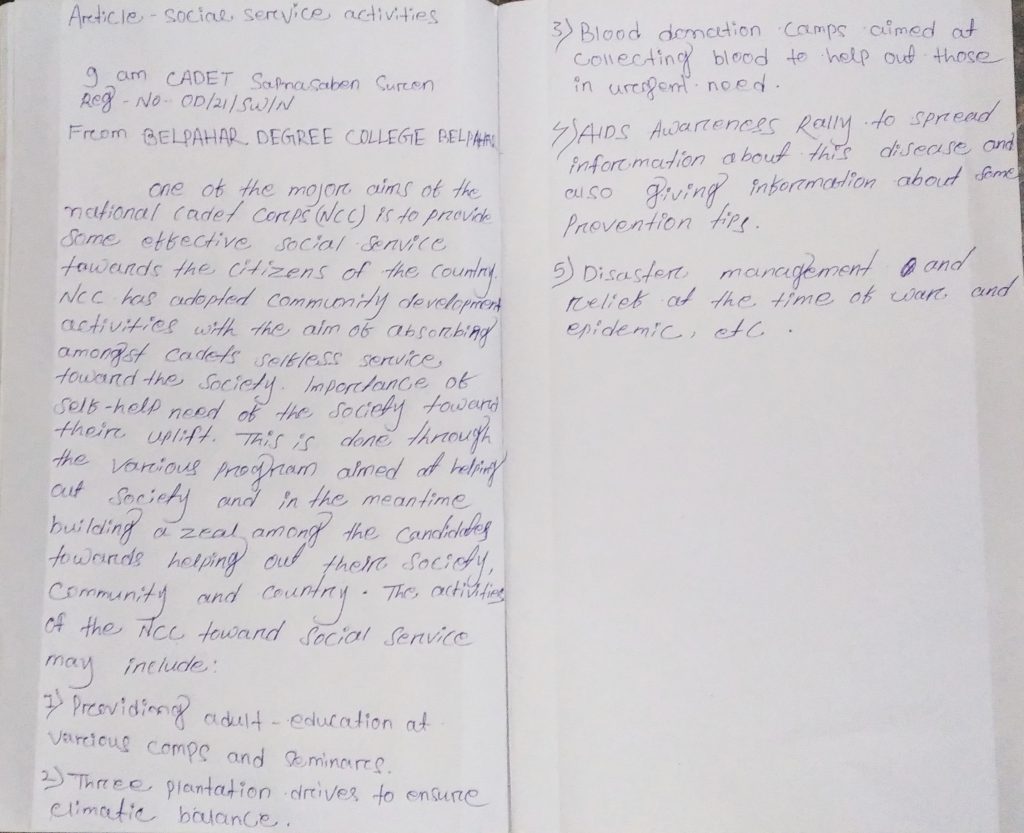 Article - social service activities
I am CADET Sapnasaben Suren
Reg - No - OD/21/SW/N
From BELPAHAR DEGREE COLLEGE BELPAHAR
one of the major aims of the
national cadet corps (NCC) is to provide
some effective social service
towards the citizens of the country.
NCC has adopted community development
activities with the aim of absorbing
amongst cadets selfless service
toward the society. Importance of
self-help need of the society toward
their uplift. This is done through
the various program aimed at helping
out society and in the meantime
building a zeal among the candidates
towards helping out their society,
community and country. The activities
of the NCC toward social service
may include:
1) Providiong adult - education at
various comps and seminars.
2) Three plantation drives to ensure
climatic balance.
3) Blood donation camps aimed at
collecting blood to help out those
in urgent need.
4) AIDS Awareness Rally to spread
information about this disease and
also giving information about some
prevention tips.
5) Disaster management and
relief at the time of war and
epidemic, etc.